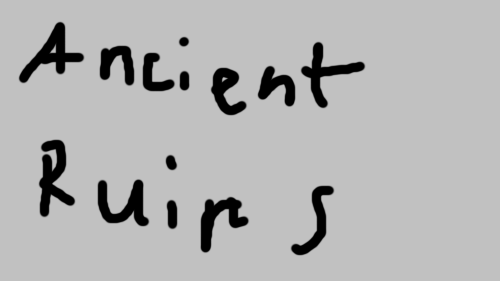 Ancient
Ruins